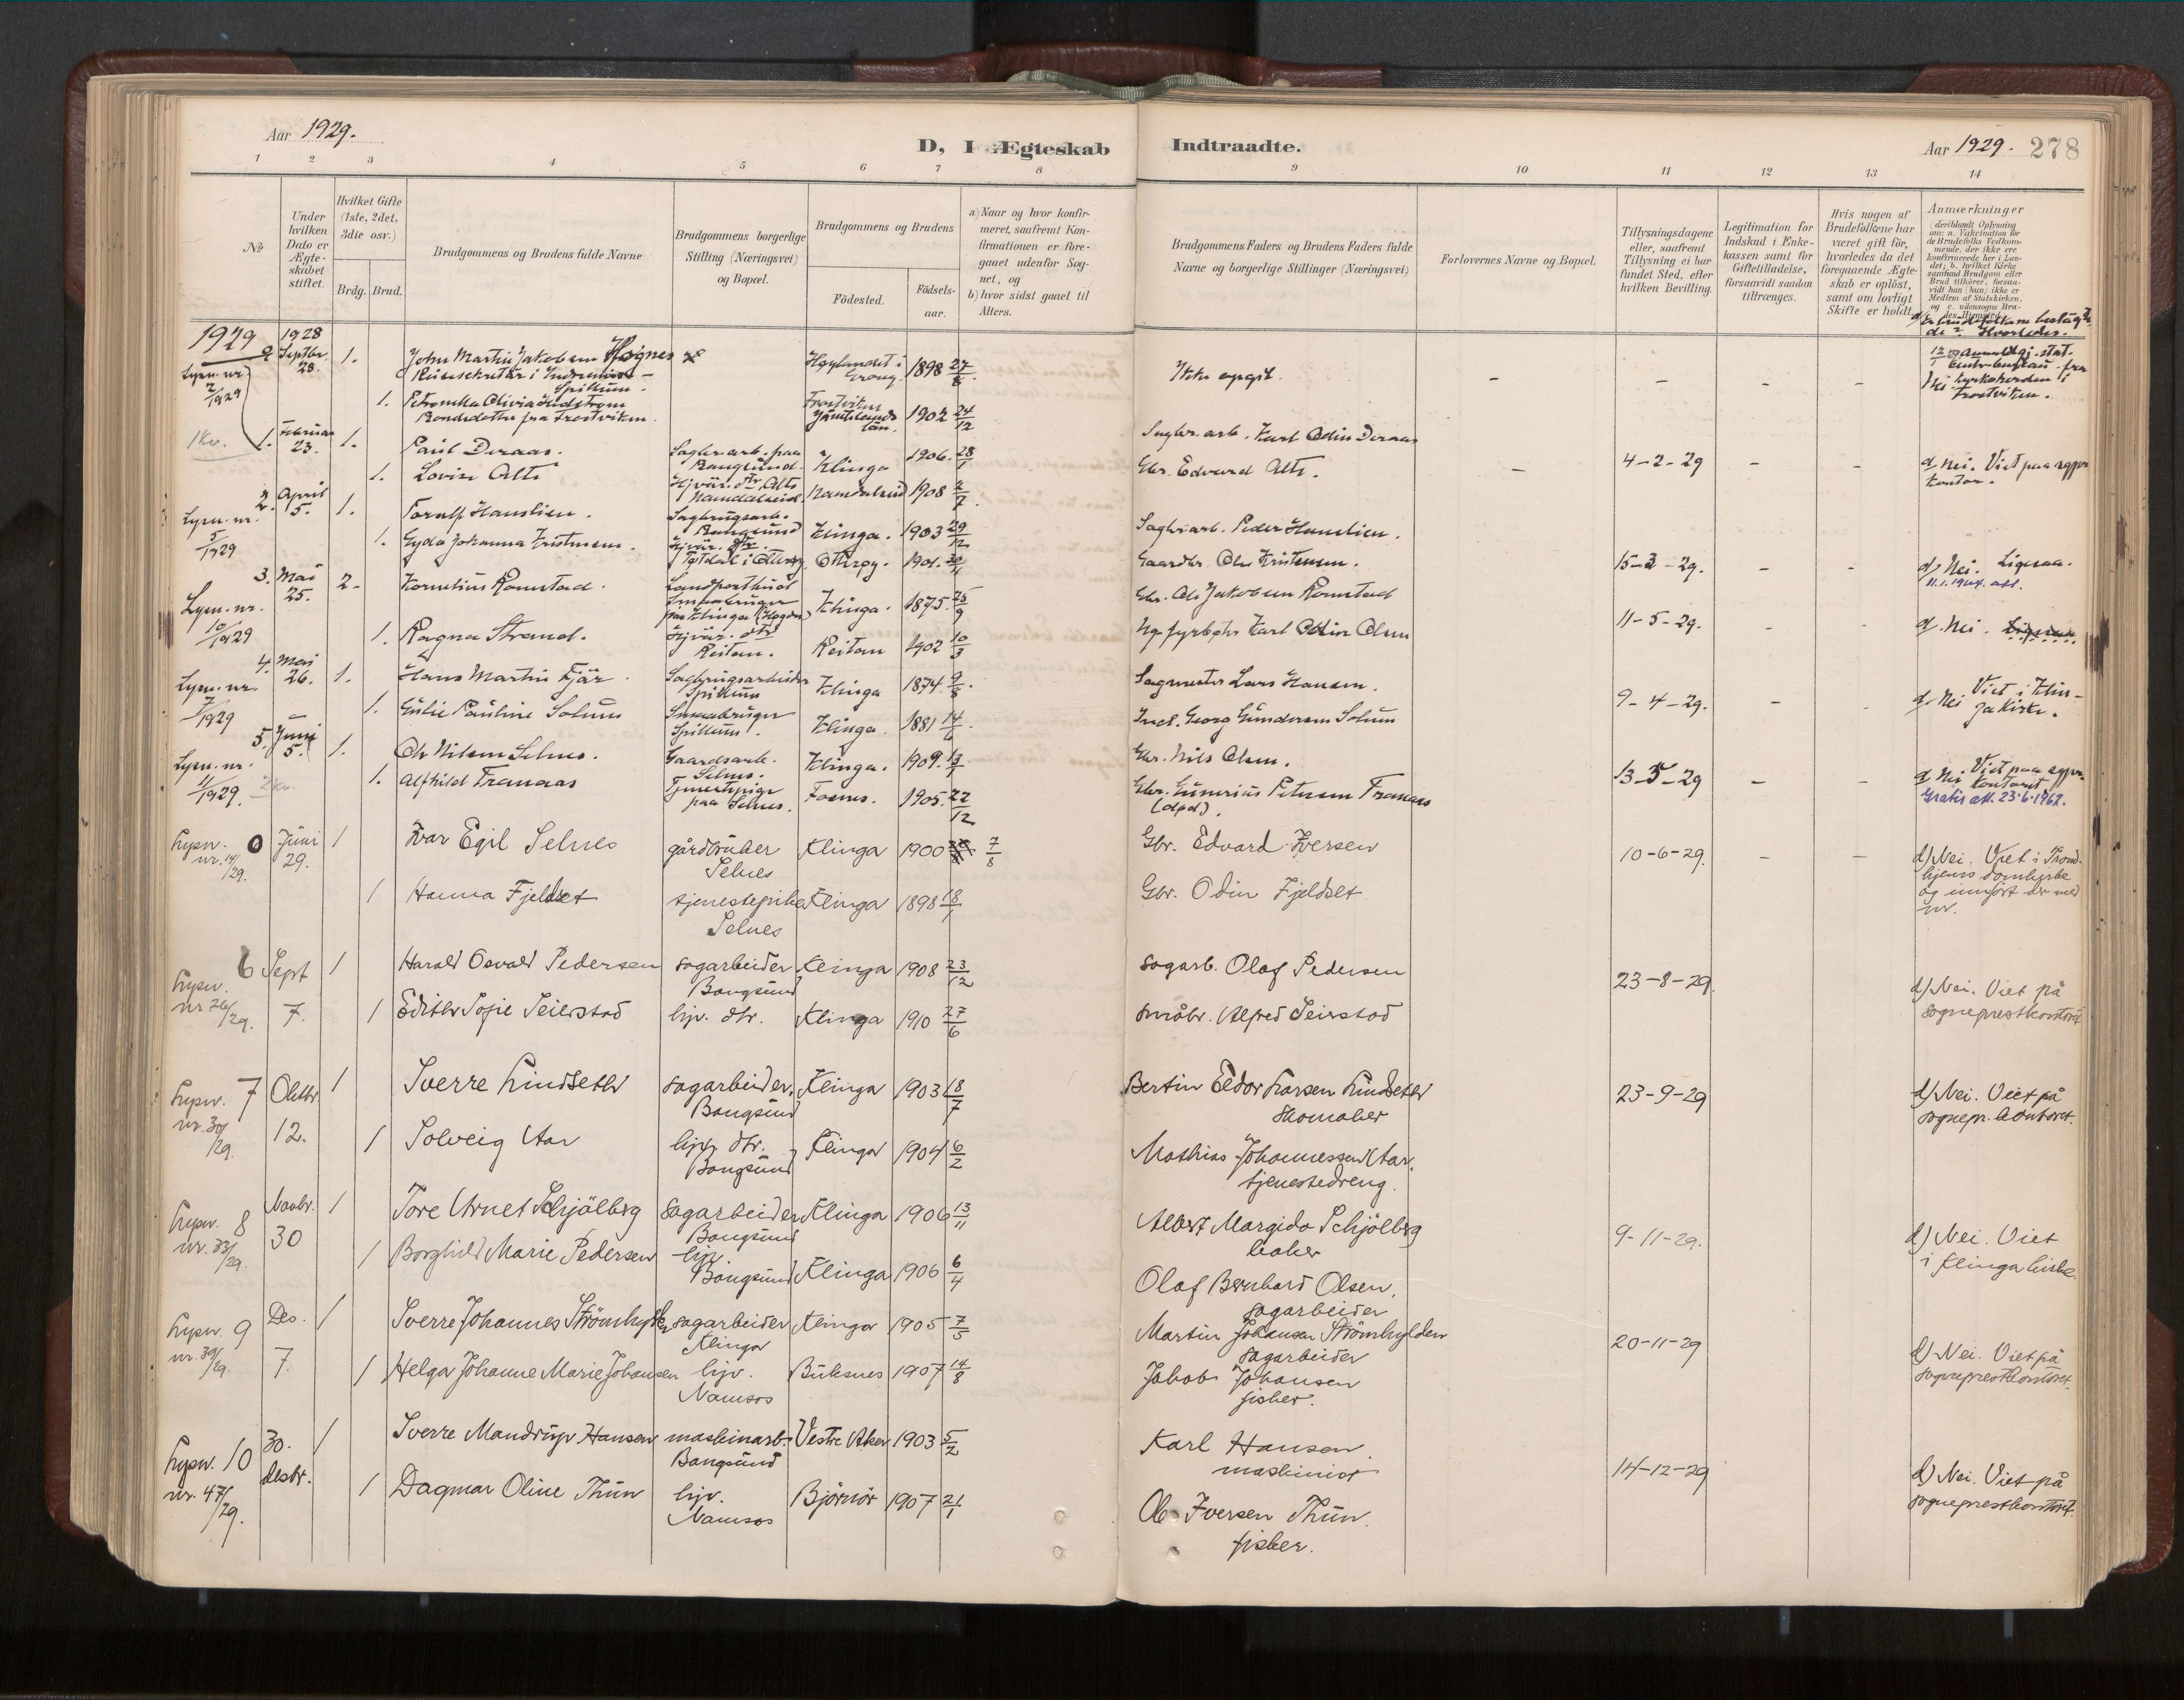 Aar 1929.
D, I Ægteskab
Indtraadte.
Aar 1929. 278
1 2 3 4 5 6 7 8 9 10 11 12 13 14
No
Under hvilken Dato er Ægteskabet stiftet.
Hvilket Gifte (1ste, 2det, 3die osv.)
Brdg. Brud.
Brudgommens og Brudens fulde Navne
Brudgommens borgerlige Stilling (Næringsvei) og Bopæl.
Brudgommens og Brudens
Fødested.
Fødselsaar.
a) Naar og hvor konfirmeret, saafremt Konfirmationen er foregaaet udenfor Sognet, og
b) hvor sidst gaaet til Alters.
Brudgommens Faders og Brudens Faders fulde Navne og borgerlige Stillinger (Næringsvei)
Forlovernes Navne og Bopæl.
Tillysningsdagene eller, saafremt Tillysning ei har fundet Sted, efter hvilken Bevilling.
Legitimation for Indskud i Enkekassen samt for Giftetilladelse, forsaavidt saadan tiltrænges.
Hvis nogen af Brudefolkene har været gift før, hvorledes da det foregaaende Ægteskab er opløst, samt om lovligt Skifte er holdt.
Anmærkninger
1929 1928
Septbr. 28. 1. John Martin Jakobsen Høgnes
Høylandet i Grong. 1898 27/8
Ikke opgit.
Lysn. nr. 2/1929
1. Petronella Olivia Hedstrøm
Bondedatter fra Frostviken
Frostviken Jämtlands län. 1902 24/12
1. Februar 23. 1. Paul Deraas. Sagbr.arb. paa Bangsund. Klinga 1906. 28/1
Sagbr. arb. Karl Odin Deraas
4-2-29
1. Lovise Alte Hjvær. dtr. Alte Namdalseid. Namdalseid 1908 2/7
Gbr. Edvard Alte.
d. Nei. Viet paa sogpr. kontor.
Lysn. nr. 5/1929
2. April 5. 1. Toralf Hanslien. Sagbrugsarb. Bangsund Klinga. 1903 29/12
Sagbr.arb. Peder Hanslien.
15-3-29.
1. Gyda Johanna Kristensen. Otterøy. 1901.
Gaardbr. Ole Kristensen.
d. Nei. Ligesaa.
11.1.1964. att.
Lysn. nr. 10/1929
3. Mai 25. 2. Kornelius Romstad. Landpostbud Smaabruger paa Klinga Klinga. 1875. 25/9
Gbr. Ole Jakobsen Romstad
11-5-29.
1. Ragna Strand. Hjvær. dtr Reitan. Reitan 1902 10/3
Karl Odin Olsen
d. Nei. Ligesaa
Lysn. nr. 7/1929
4. Mai 26. 1. Hans Martin Fjær Sagbrugsarbeider Spillum Klinga 1874 9/8.
Sagmester Lars Hansen.
9-4-29.
1. Gulie Pauline Solum Smaabruger Spillum. Klinga. 1881 14/6
Georg Gundersen Solum
d. Nei Viet i Klinga Kirke.
Lysn. nr. 11/1929. 2 kv.
5. Juni 5. 1. Ole Nilsen Selnes. Gaardsarb. Selnes. Klinga. 1909. 13/7
Gbr. Nils Olsen.
13-5-29
1. Alfhild Franaas Tjenestepige paa Selnes. Fosnes. 1905. 22/12
Gbr. Gunerius Petersen Franaas (død).
d. Nei Viet paa sogpr. kontoret.
Gratis att. 23.6.1962.
Lysn. nr. 14/29. 0 Juni 29. 1 Ivar Egil Selnes gårdbruker Selnes Klinga 1900 7/8
Gbr. Edvard Iversen
10-6-29.
1 Hanna Fjeldset tjenestepike Selnes Klinga 1898 18/1
Gbr. Odin Fjeldset
d) Nei. Viet i Trondhjems domkirke og innført der med nr.
Lysn. nr 26/29. 6 Sept 7. 1 Harald Osvald Pedersen sagarbeider Bangsund Klinga 1908 23/12
sagarb. Olaf Pedersen
23-8-29.
1 Edith Sofie Seierstad hjv. dtr. Klinga 1910 27/6
småbr. Alfred Seierstad
d) Nei. Viet på sogneprestkontoret
Lysn. nr. 30/29. 7 Oktbr. 12. 1 Sverre Lindseth sagarbeider, Bangsund Klinga 1903 18/7
Bertin Eldor Larsen Lindseth skomaker
23-9-29
1 Solveig Aar hjv. dtr. Bangsund Klinga 1904 6/2
Mathias Johannessen Aar. tjenestedreng.
d) Nei. Viet på sognepr. kontoret.
Lysn. nr. 33/29. 8 Novbr. 30 1 Tore Arnet Schjölberg sagarbeider Bangsund Klinga 1906 13/11
Albert Margido Schjölberg baker
9-11-29.
1 Borghild Marie Pedersen hjv. Bangsund Klinga 1906 6/4
Olaf Bernhard Olsen, sagarbeider
d) Nei. Viet i Klinga kirke.
Lysn. nr. 39/29. 9 Des. 7. 1 Sverre Johannes Strömhylden sagarbeider Klinga Klinga 1905 7/5
Martin Johansen Strömhylden sagarbeider
20-11-29
1 Helga Johanne Marie Johansen hjv. Namsos Buksnes 1907 14/8
Jakob Johansen fisker.
d) Nei. Viet på sogneprestkontoret.
Lysn. nr. 47/29. 10 30. desbr. 1 Sverre Mandrup Hansen maskinarb. Bangsund Vestre Aker 1903 5/2
Karl Hansen maskinist
14-12-29
1 Dagmar Oline Thun hjv. Namsos Björnör 1907 21/1
Ole Iversen Thun. fisker.
d) Nei. Viet på sogneprestkontoret.